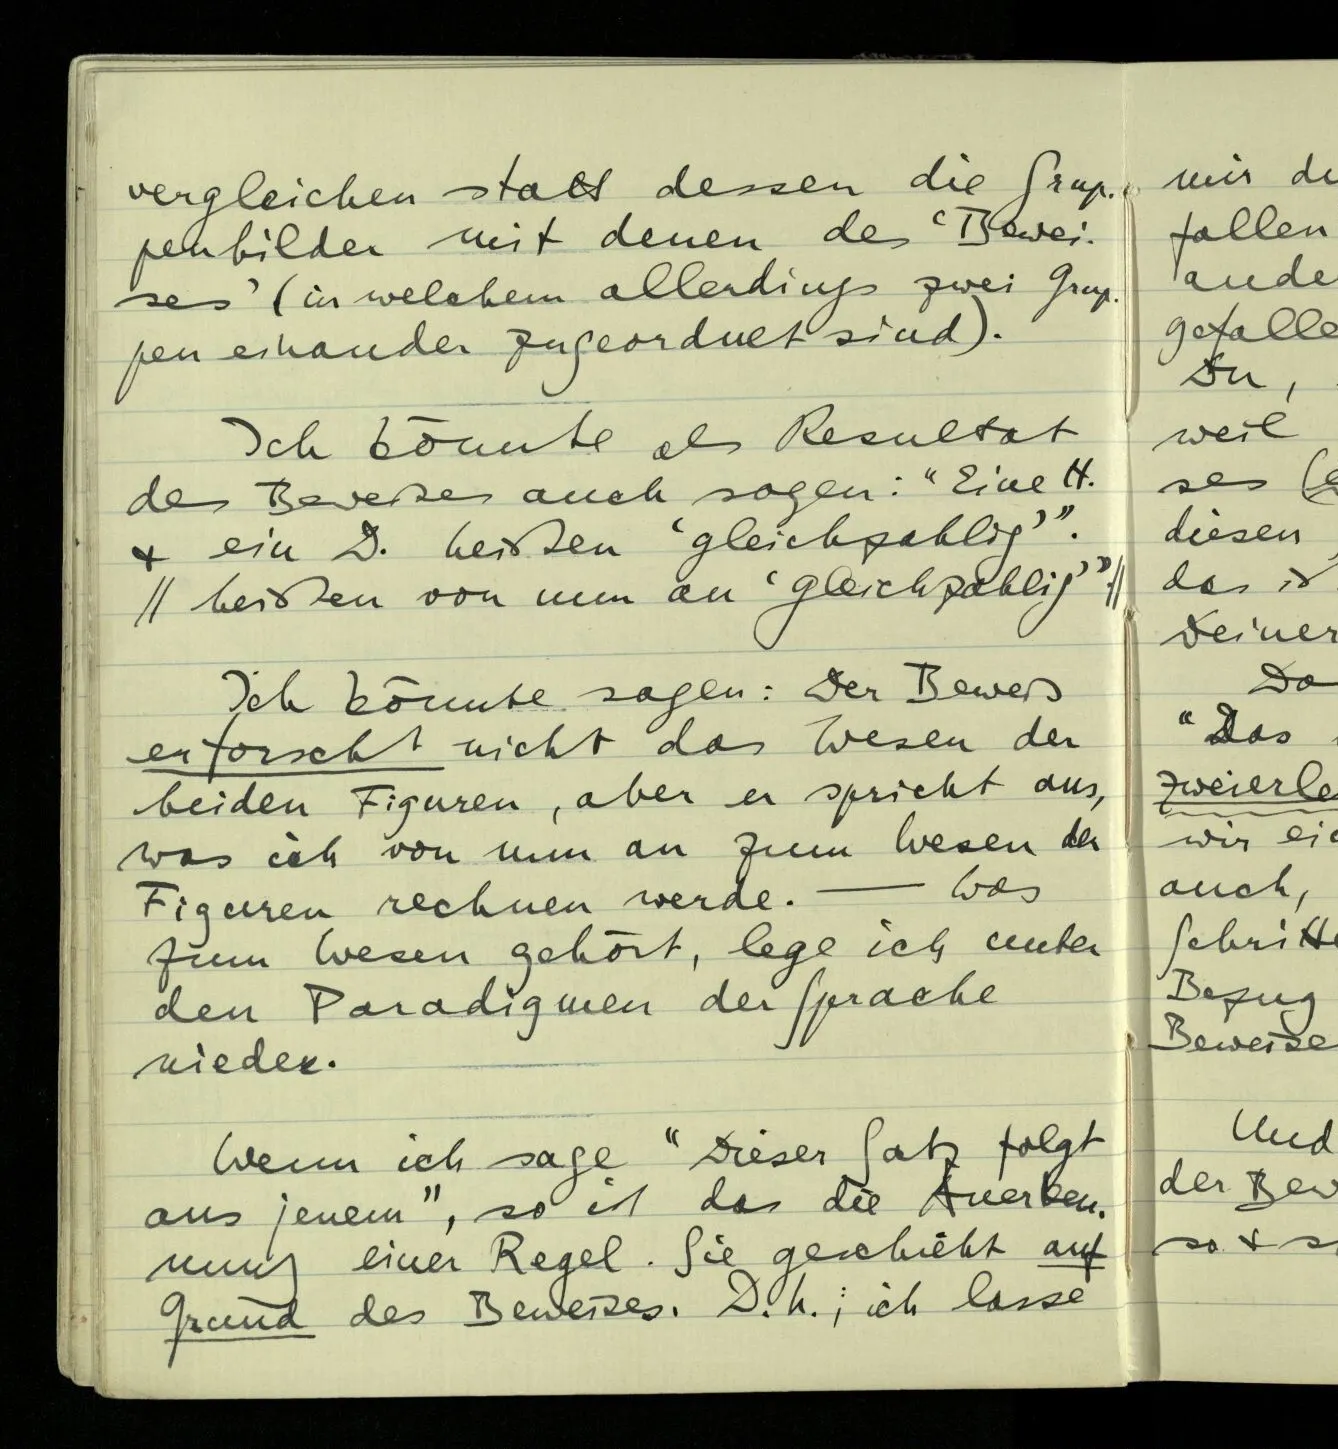 vergleichen statt dessen die Grup-
penbilder mit denen des ‘Bewei-
ses’ (in welchem allerdings zwei Grup-
pen einander zugeordnet sind).
Ich könnte als Resultat
des Beweises auch sagen: “Eine H.
& ein D. heißen ‘gleichzahlig’”.
// heißen von nun an ‘gleichzahlig’”.//
Ich könnte sagen: Der Beweis
erforscht nicht das Wesen der
beiden Figuren, aber er spricht aus,
was ich von nun an zum Wesen der
Figuren rechnen werde. — Was
zum Wesen gehört, lege ich unter
den Paradigmen der Sprache
nieder.
Wenn ich sage “Dieser Satz folgt
aus jenem”, so ist das die Anerken-
nung einer Regel. Sie geschieht auf
Grund des Beweises. D.h.; ich lasse
mir
fallen
ande
gefalle
Du,
weil
ses
diesen
das is
Deiner
Da
“Das
zweierle
wir eic
auch,
Schritte
Bezug
Beweise
Und
der Bew
so & s